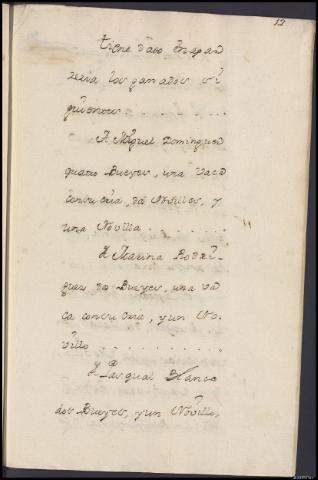 12
tiene dado en apar
zeria los ganados si
guientes . . .
A Miguel Dominguez
quatro Bueyes, una Vaca
con su cria, dos Novillos, y
una Novilla . . . . . .
A Marina Rodri-
guez dos Bueyes, una va
ca con su cria, y un No-
villo . . . . . . . . . .
A Pasqual Blanco
dos Bueyes, y un Novillo,